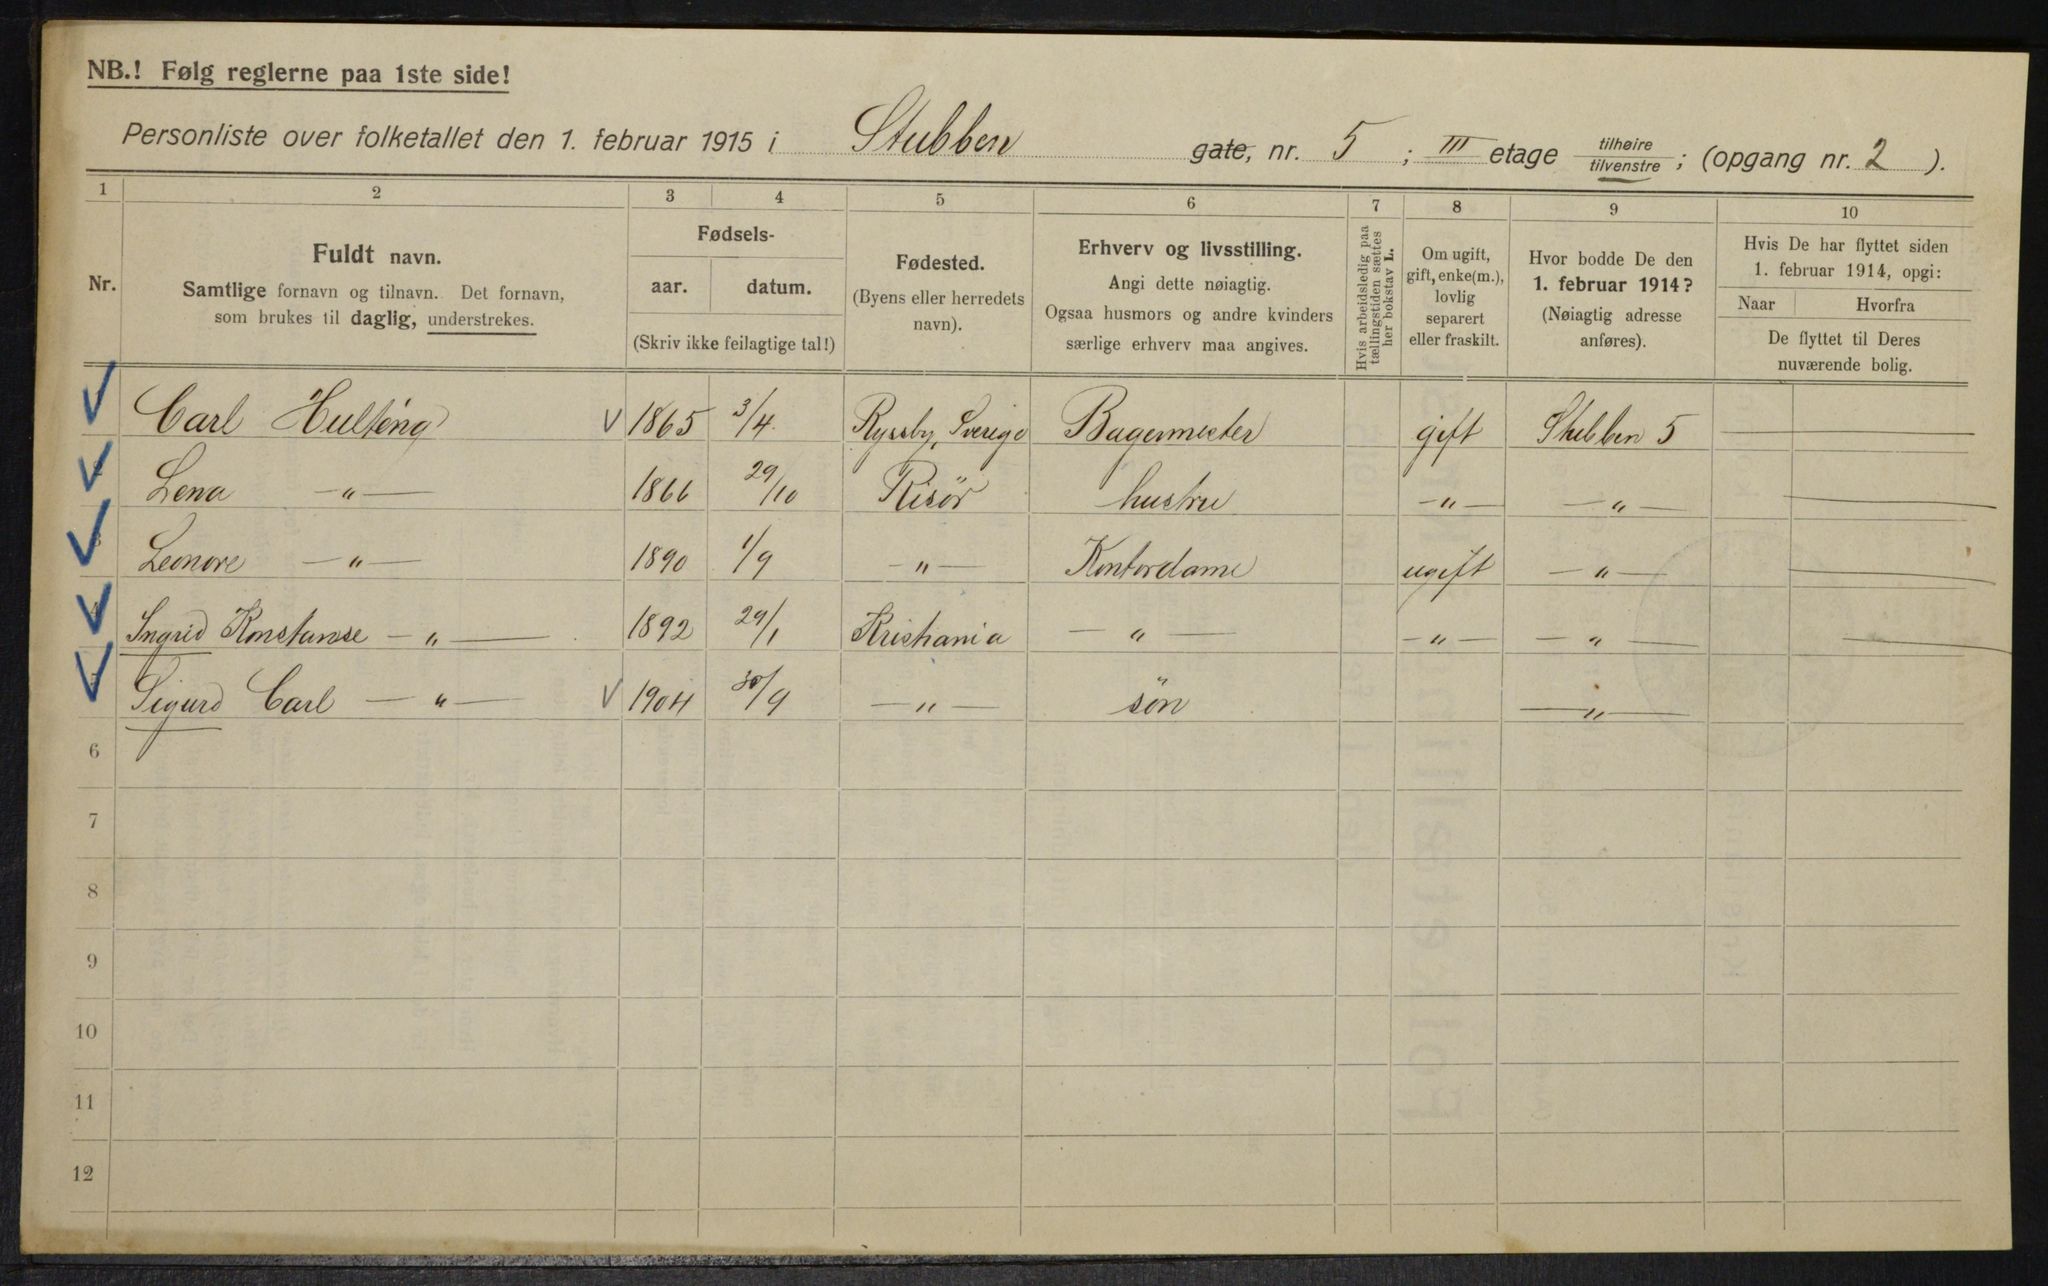 NB.! Følg reglerne paa 1ste side!
Personliste over folketallet den 1. februar 1915 i Stubben gate, nr. 5 ; III etage tilhøire tilvenstre ; (opgang nr. 2 ).
1 2 3 4 5 6 7 8 9 10
Nr.
Fuldt navn.
Samtlige fornavn og tilnavn. Det fornavn,
som brukes til daglig, understrekes.
Fødsels-
aar. datum.
(Skriv ikke feilagtige tal!)
Fødested.
(Byens eller herredets
navn).
Erhverv og livsstilling.
Angi dette nøiagtig.
Ogsaa husmors og andre kvinders
særlige erhverv maa angives.
Hvis arbeidsledig paa
tællingstiden sættes
her bokstav L.
Om ugift,
gift, enke(m.),
lovlig
separert
eller fraskilt.
Hvor bodde De den
1. februar 1914?
(Nøiagtig adresse
anføres).
Hvis De har flyttet siden
1. februar 1914, opgi:
Naar Hvorfra
De flyttet til Deres
nuværende bolig.
Carl Hulténg 1865 3/4. Ryssby, Sverige Bagermester gift Stubben 5
2 Lena — " — 1866 29/10 Risör hustru — " — — " —
3 Leonore — " — 1890 1/9 — " — Kontordame ugift — " —
4 Ingrid Konstanse — " — 1892 29/1 Kristiania — " — — " — — " —
5 Sigurd Carl — " — 1904 30/9 — " — sön — " —
6
7
8
9
10
11
12